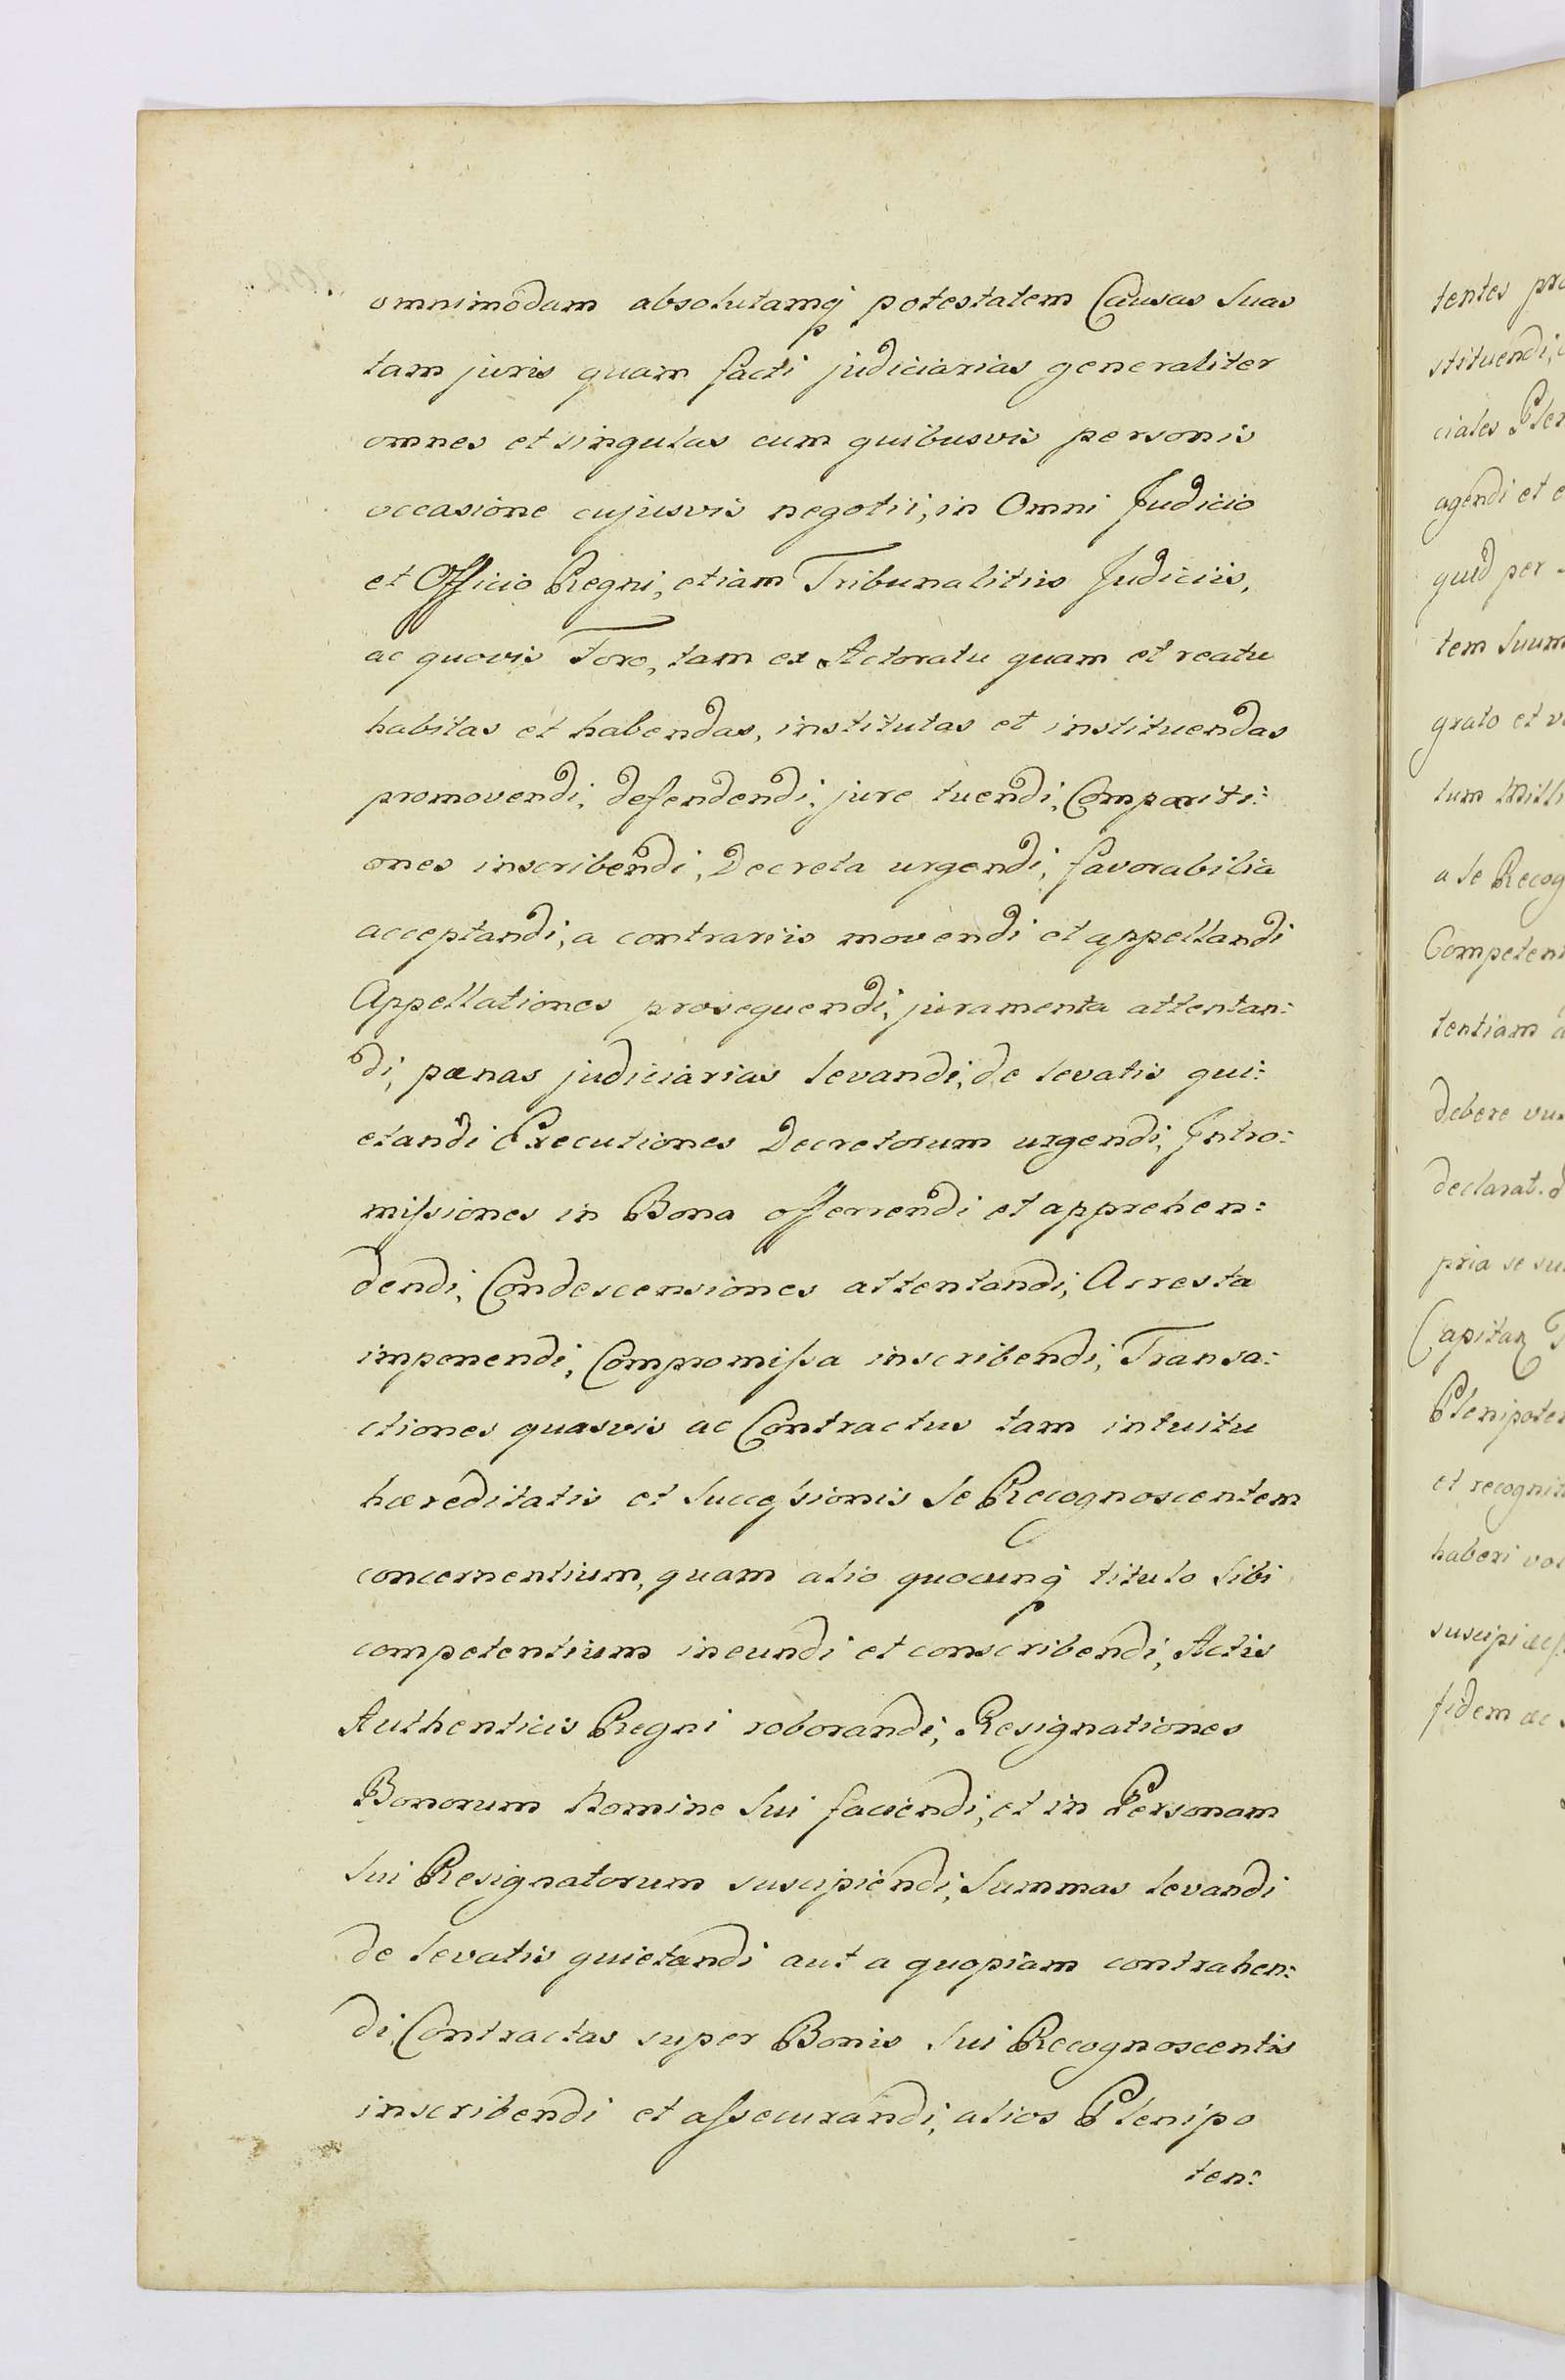 omnimodam absolutamq́ potestatem Causas suas
tam juris quam facti judiciarias generaliter
omnes et singulas cum quibusvis personis
occasione cujusvis negotii, in Omni Judicio
et Officio Regni, etiam Tribunalitiis Judiciis,
ac quovis Foro, tam ex Actoratu quam et reatu
habitas et habendas, institutas et instituendas
promovendi, defendendi, jure tuendi, Compariti:
ones inscribendi, Decreta urgendi, favorabilia
acceptandi, a contrariis movendi et appellandi
Appellationes prosequendi, juramenta attentan:
di, pœnas judiciarias levandi, de levatis qui:
etandi Executiones Decretorum urgendi, Intro:
missiones in Bona offerrendi et apprehen:
dendi, Condescensiones attentandi, Arresta
imponendi, Compromissa inscribendi, Transa:
ctiones quasvis ac Contractus tam intuitu
hæreditatis et successionis se Recognoscentem
concernentium, quam alio quocunq́ titulo sibi
competentium ineundi et conscribendi, Actis
Authenticis Regni roborandi, Resignationes
Bonorum Nomine sui faciendi, et in Personam
sui Resignatorum suscipiendi, summas levandi
de levatis quietandi aut a quopiam contrahen:
di, Contractas super Bonis sui Recognoscentis
inscribendi et assecurandi, alios Plenipo
ten:
tentes pro
stituendi,
ciales Plen
agendi et
quid per
tem suum
grato et
tum
a se Recog
Competen
tentiam
debere
declarat.
pria se
Capitan
Plenipoten
et recognit
haberi
suscipi
fidem ac